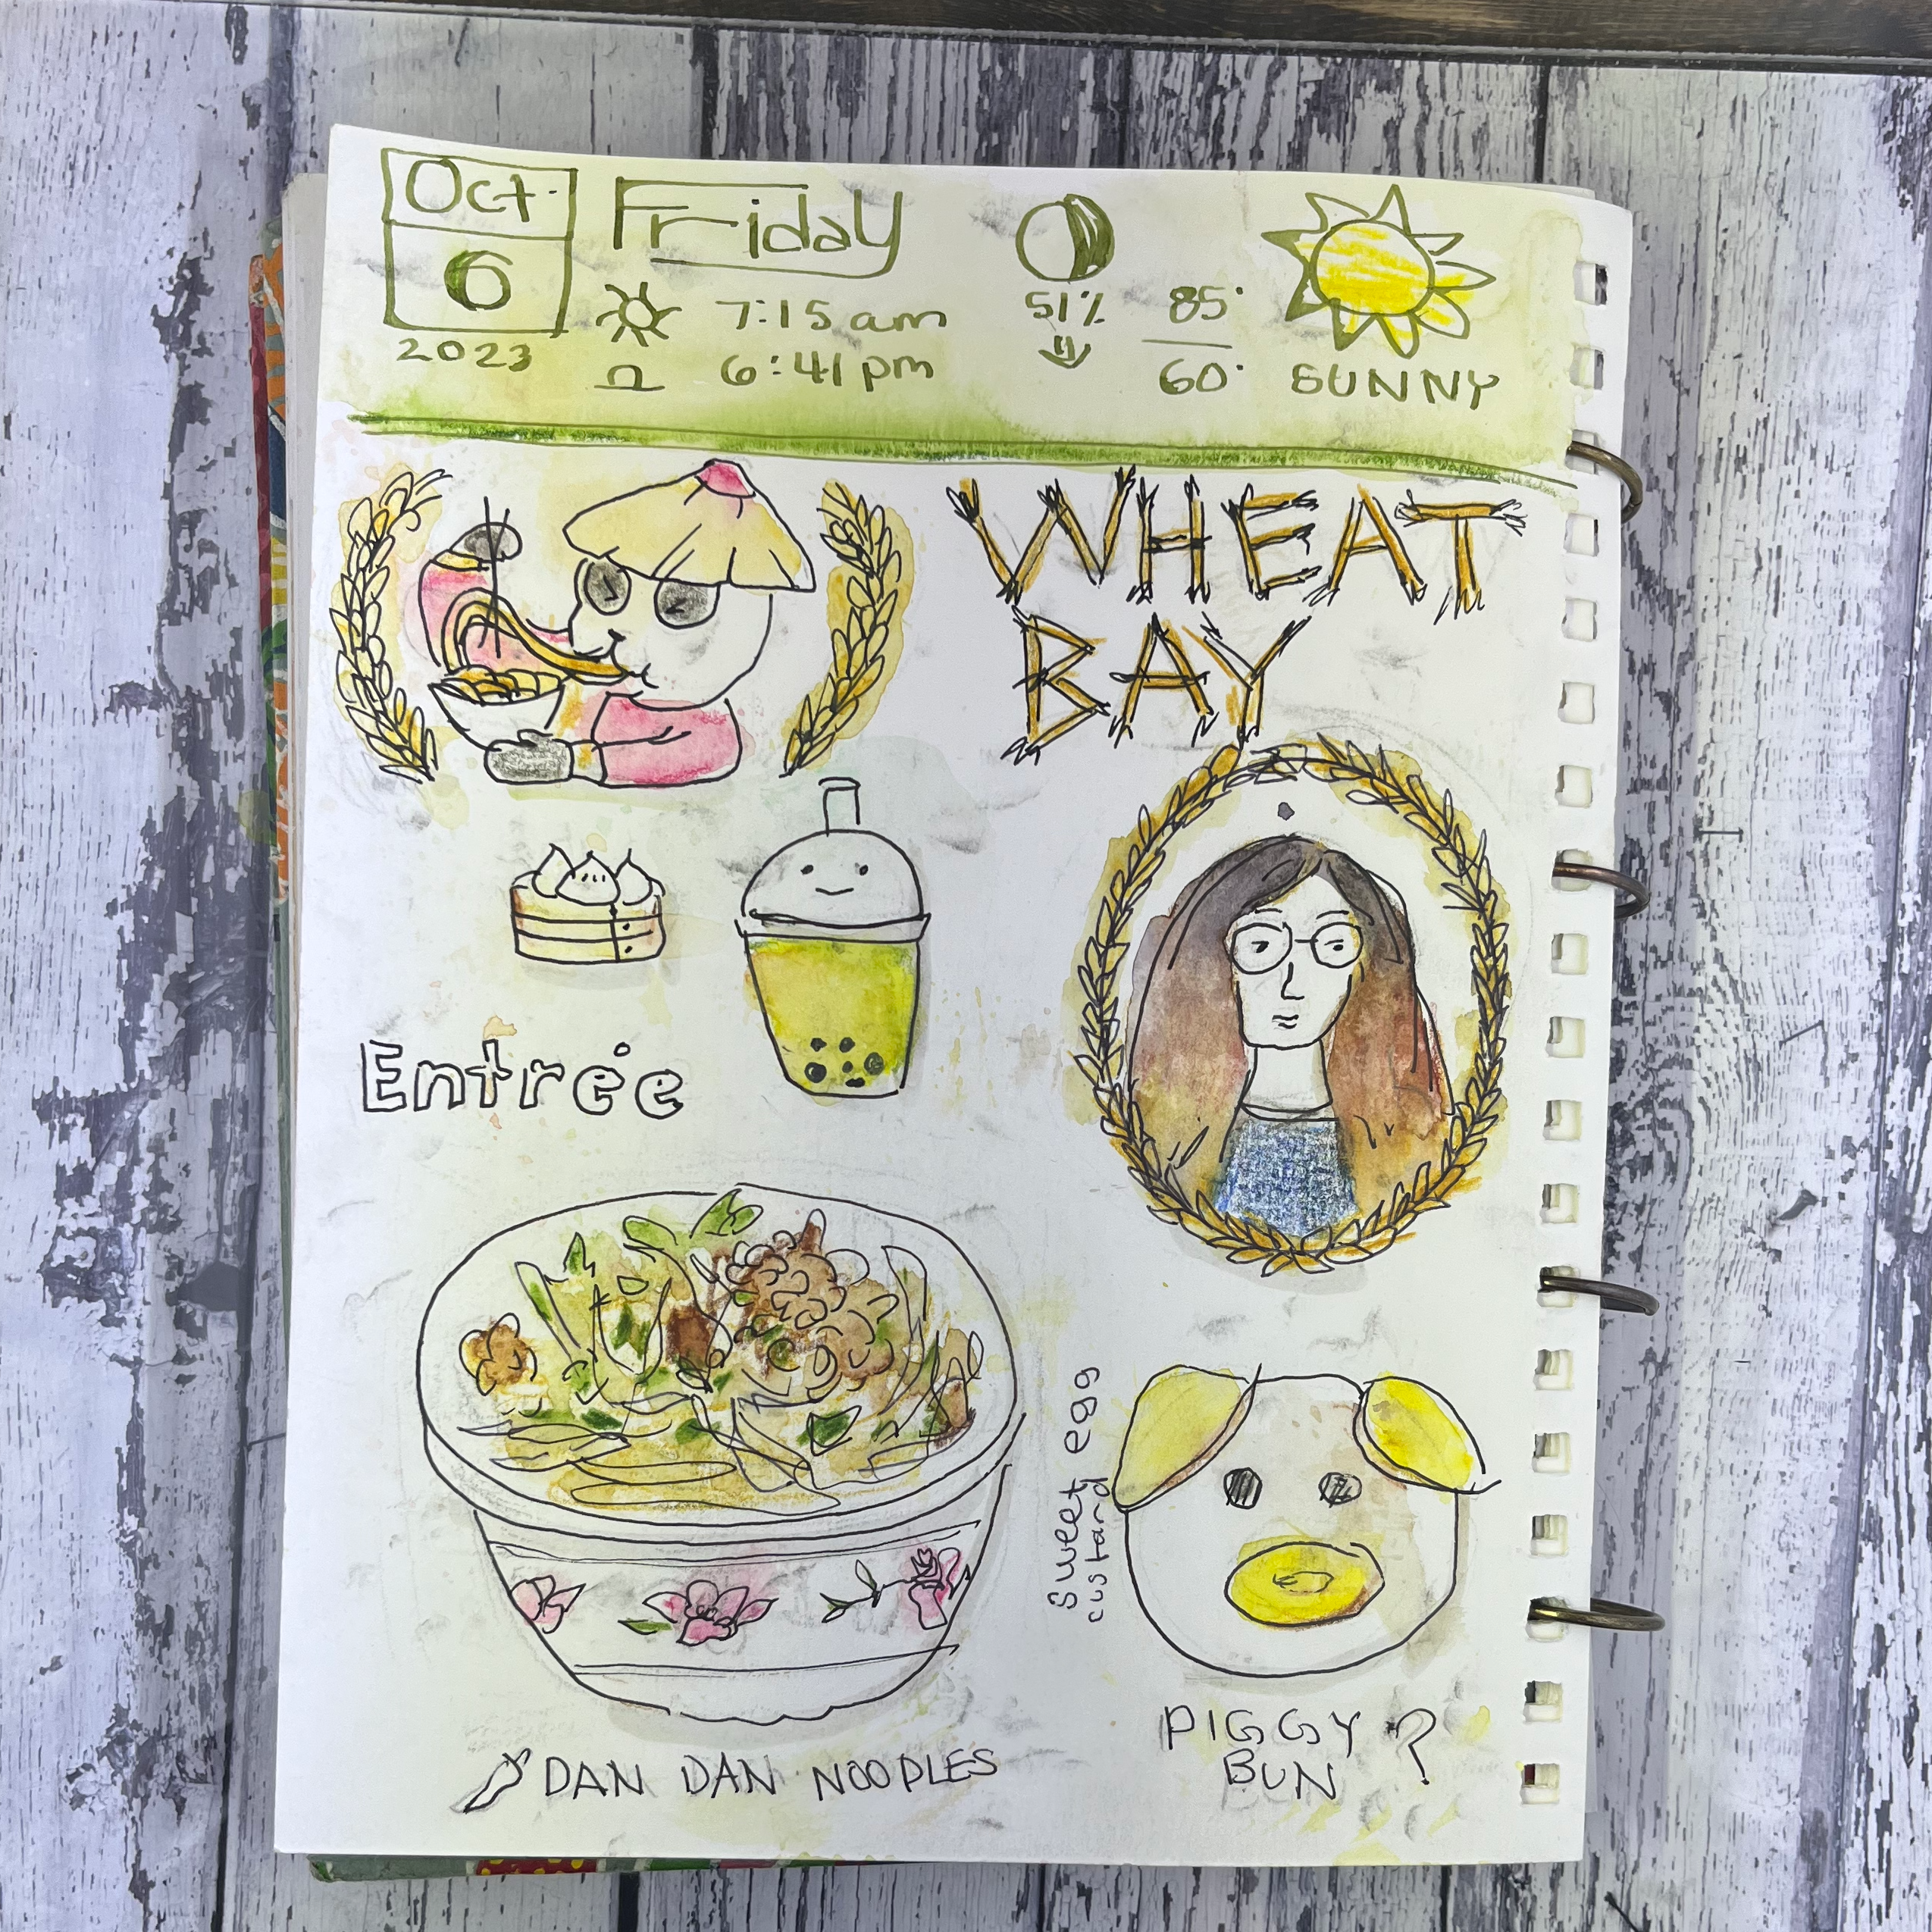 Oct.
6
2023
Friday
7:15 am
6:41 pm
51%
85°
60°
SUNNY
WHEAT
BAY
Entrée
Sweet egg
custard
DAN DAN NOODLES
PIGGY
BUN ?